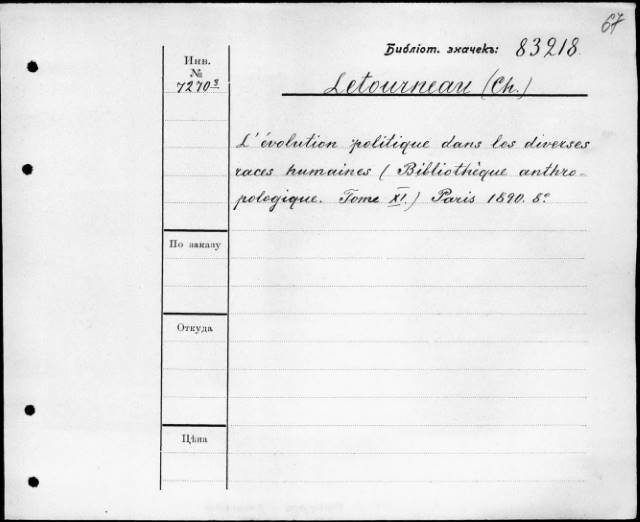 67
Библіот. значекъ: 83218.
Инв.
№
7270³
Letourneau (Ch.)
L'évolution politique dans les diverses
races humaines (Bibliothèque anthro-
pologique. Tome XI.) Paris 1890. 8°
По заказу
Откуда
Цѣна